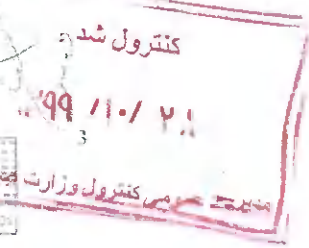 کنترول شد
۹۹ /۱۰/ ۲۱
عمومی کنترول وزارت